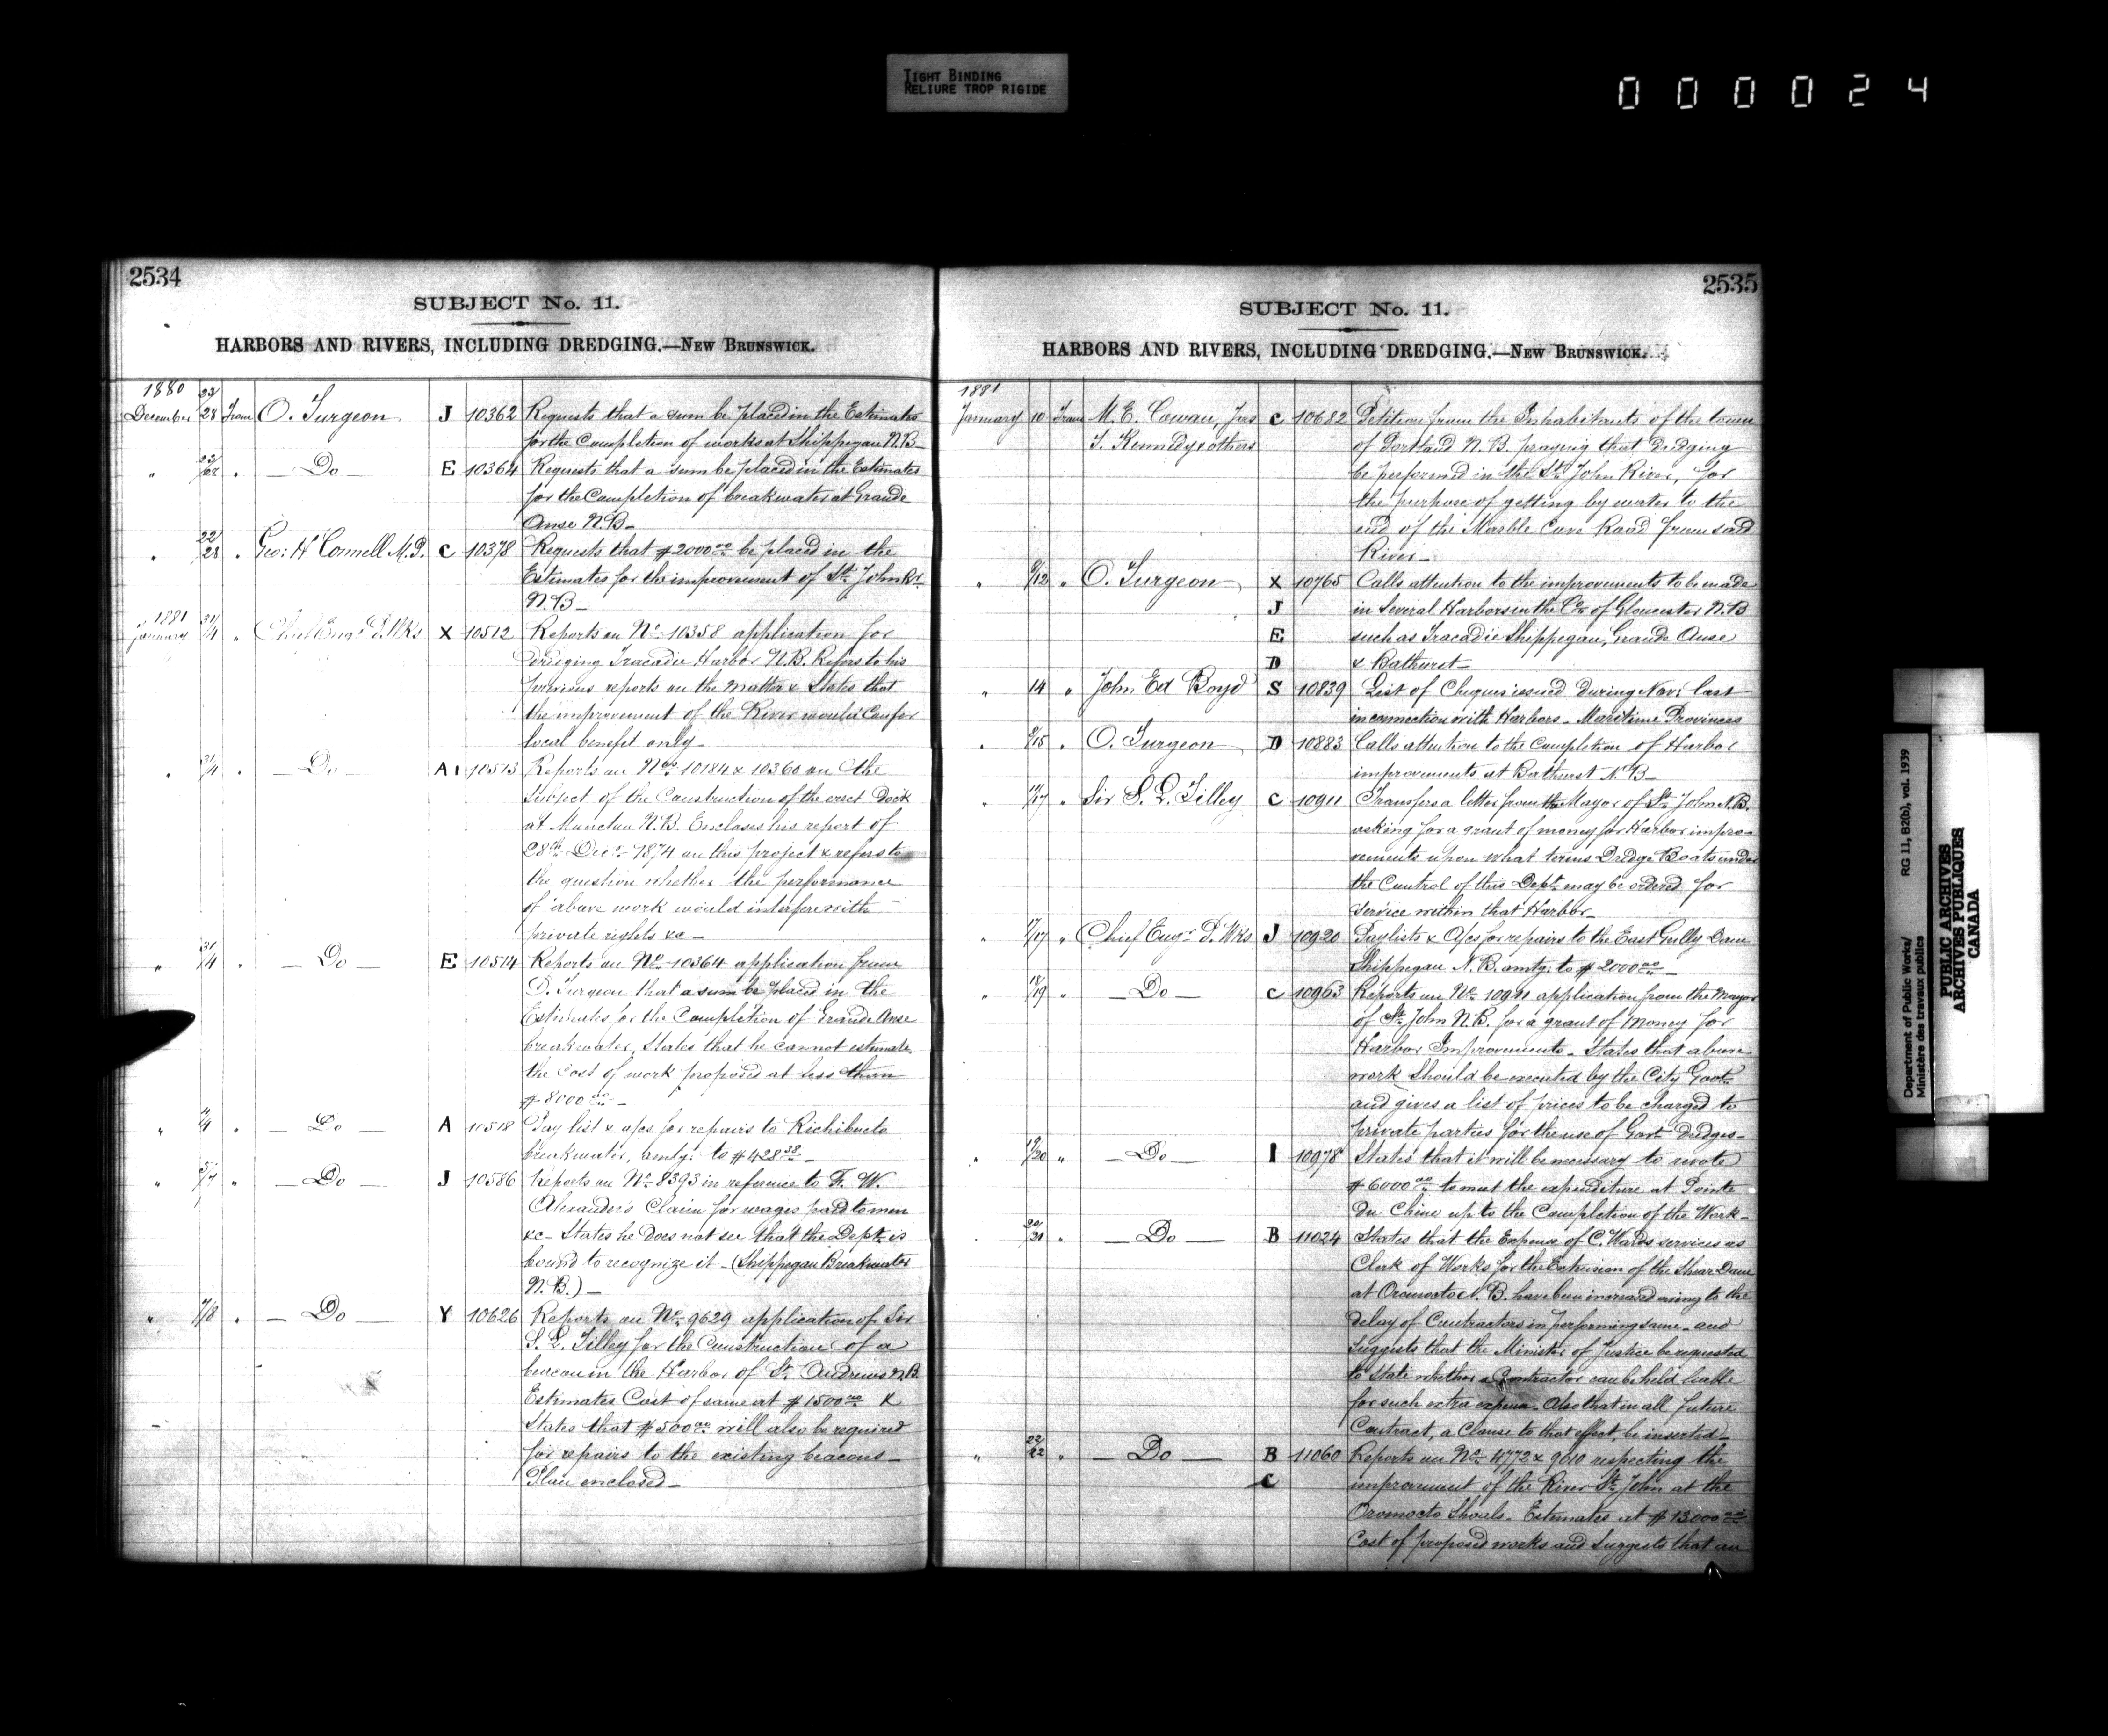 TIGHT BINDING
RELIURE TROP RIGIDE
000024
2534
SUBJECT No. 11.
HARBORS AND RIVERS, INCLUDING DREDGING.—NEW BRUNSWICK.
1880
December 23/28 From O. Turgeon J 10362 Requests that a sum be placed in the Estimates
for the Completion of works at Shippegan N.B—
" 23/28 " — Do — E 10364 Requests that a sum be placed in the Estimates
for the Completion of breakwater at Grande
Anse N.B—
" 22/28 " Geo: H Connell M.P. C 10378 Requests that $2000 00 be placed in the
Estimates for the improvement of St. John Rr
N.B—
1881
January 31/4 " Chief Engr P. Wks X 10512 Reports on No 10358 application for
dredging Tracadie Harbor N.B. Refers to his
previous reports on the matter & States that
the improvement of the River would Confer
local benefit only—
" 31/4 " — Do — A1 10513 Reports on Nos 10184 & 10360 on the
Subject of the Construction of the Dock
at Moncton N.B. Encloses his report of
28th Decr 1874 on this project & refers to
the question whether the performance
of above work would interfere with
private rights &c—
" 31/4 " — Do — E 10514 Reports on No 10364 application from
O. Turgeon that a sum be placed in the
Estimates for the Completion of Grande Anse
breakwater, States that he cannot estimate
the cost of work proposed at less than
$8000 00—
" 4/4 " — Do — A 10518 Pay list & a/cs for repairs to Richibucto
breakwater, amtg: to $428 38—
" 5/7 " — Do — J 10586 Reports on No 8393 in reference to F. W.
Alexander's Claim for wages paid to men
&c— States he does not see that the Dept. is
bound to recognize it—(Shippegan Breakwater
N.B.)—
" 7/8 " — Do — Y 10626 Reports on No 9629 application of Sir
S. L. Tilley for the Construction of a
beacon in the Harbor of St. Andrews N.B.
Estimates Cost of same at $1500 00 &
States that $500 00 will also be required
for repairs to the existing beacons—
Plan enclosed—
2535
SUBJECT No. 11.
HARBORS AND RIVERS, INCLUDING DREDGING.—NEW BRUNSWICK.
1881
January 10 From M. E. Cowan, Jas C 10682 Petition from the Inhabitants of the town
T. Kennedy & others of Portland N.B. praying that Dredging
be performed in the St. John River, for
the purpose of getting by water to the
end of the Marble Cove Road from said
River—
" 9/12 " O. Turgeon X 10765 Calls attention to the improvements to be made
J in Several Harbors in the Co. of Gloucester N.B
E such as Tracadie Shippegan, Grande Anse
D & Bathurst—
" 14 " John Ed Boyd S 10839 List of Cheques issued During Nov: last
in connection with Harbors— Maritime Provinces
" 9/15 " O. Turgeon D 10883 Calls attention to the Completion of Harbor
improvements at Bathurst N.B—
" 17 " Sir S. L. Tilley C 10911 Transfers a letter from the Mayor of St. John N.B.
asking for a grant of money for Harbor impro-
vements upon what terms Dredge Boats under
the Control of this Dept. may be ordered for
service within that Harbor—
" 17 " Chief Engr P. Wks J 10920 Paylists & A/cs for repairs to the East Gully Dam
Shippegan N.B. amtg: to $2000 00—
" 18/19 " — Do — C 10963 Reports on No 10911 application from the Mayor
of St. John N.B. for a grant of Money for
Harbor Improvements— States that above
work Should be executed by the City Govt.
and gives a list of prices to be charged to
private parties for the use of Govt Dredges—
" 19/20 " — Do — I 10978 States that it will be necessary to revote
$6000 00 to meet the expenditure at Pointe
Du Chêne up to the Completion of the Work—
" 20/21 " — Do — B 11024 States that the Expense of C. Wards services as
Clerk of Works for the Extension of the Shear Dam
at Oromocto N.B. have been increased owing to the
Delay of Contractors in performing same— and
Suggests that the Minister of Justice be requested
to State whether a Contractor can be held liable
for such extra expense. Also that in all future
Contract, a Clause to that effect, be inserted—
" 22/22 " — Do — B 11060 Reports on No. 4772 & 9610 respecting the
C improvement of the River St. John at the
Oromocto Shoals— Estimates at $13000 00
Cost of proposed works and Suggests that an
Department of Public Works/ RG 11, B2(b), vol. 1939
Ministère des travaux publics
PUBLIC ARCHIVES
ARCHIVES PUBLIQUES
CANADA